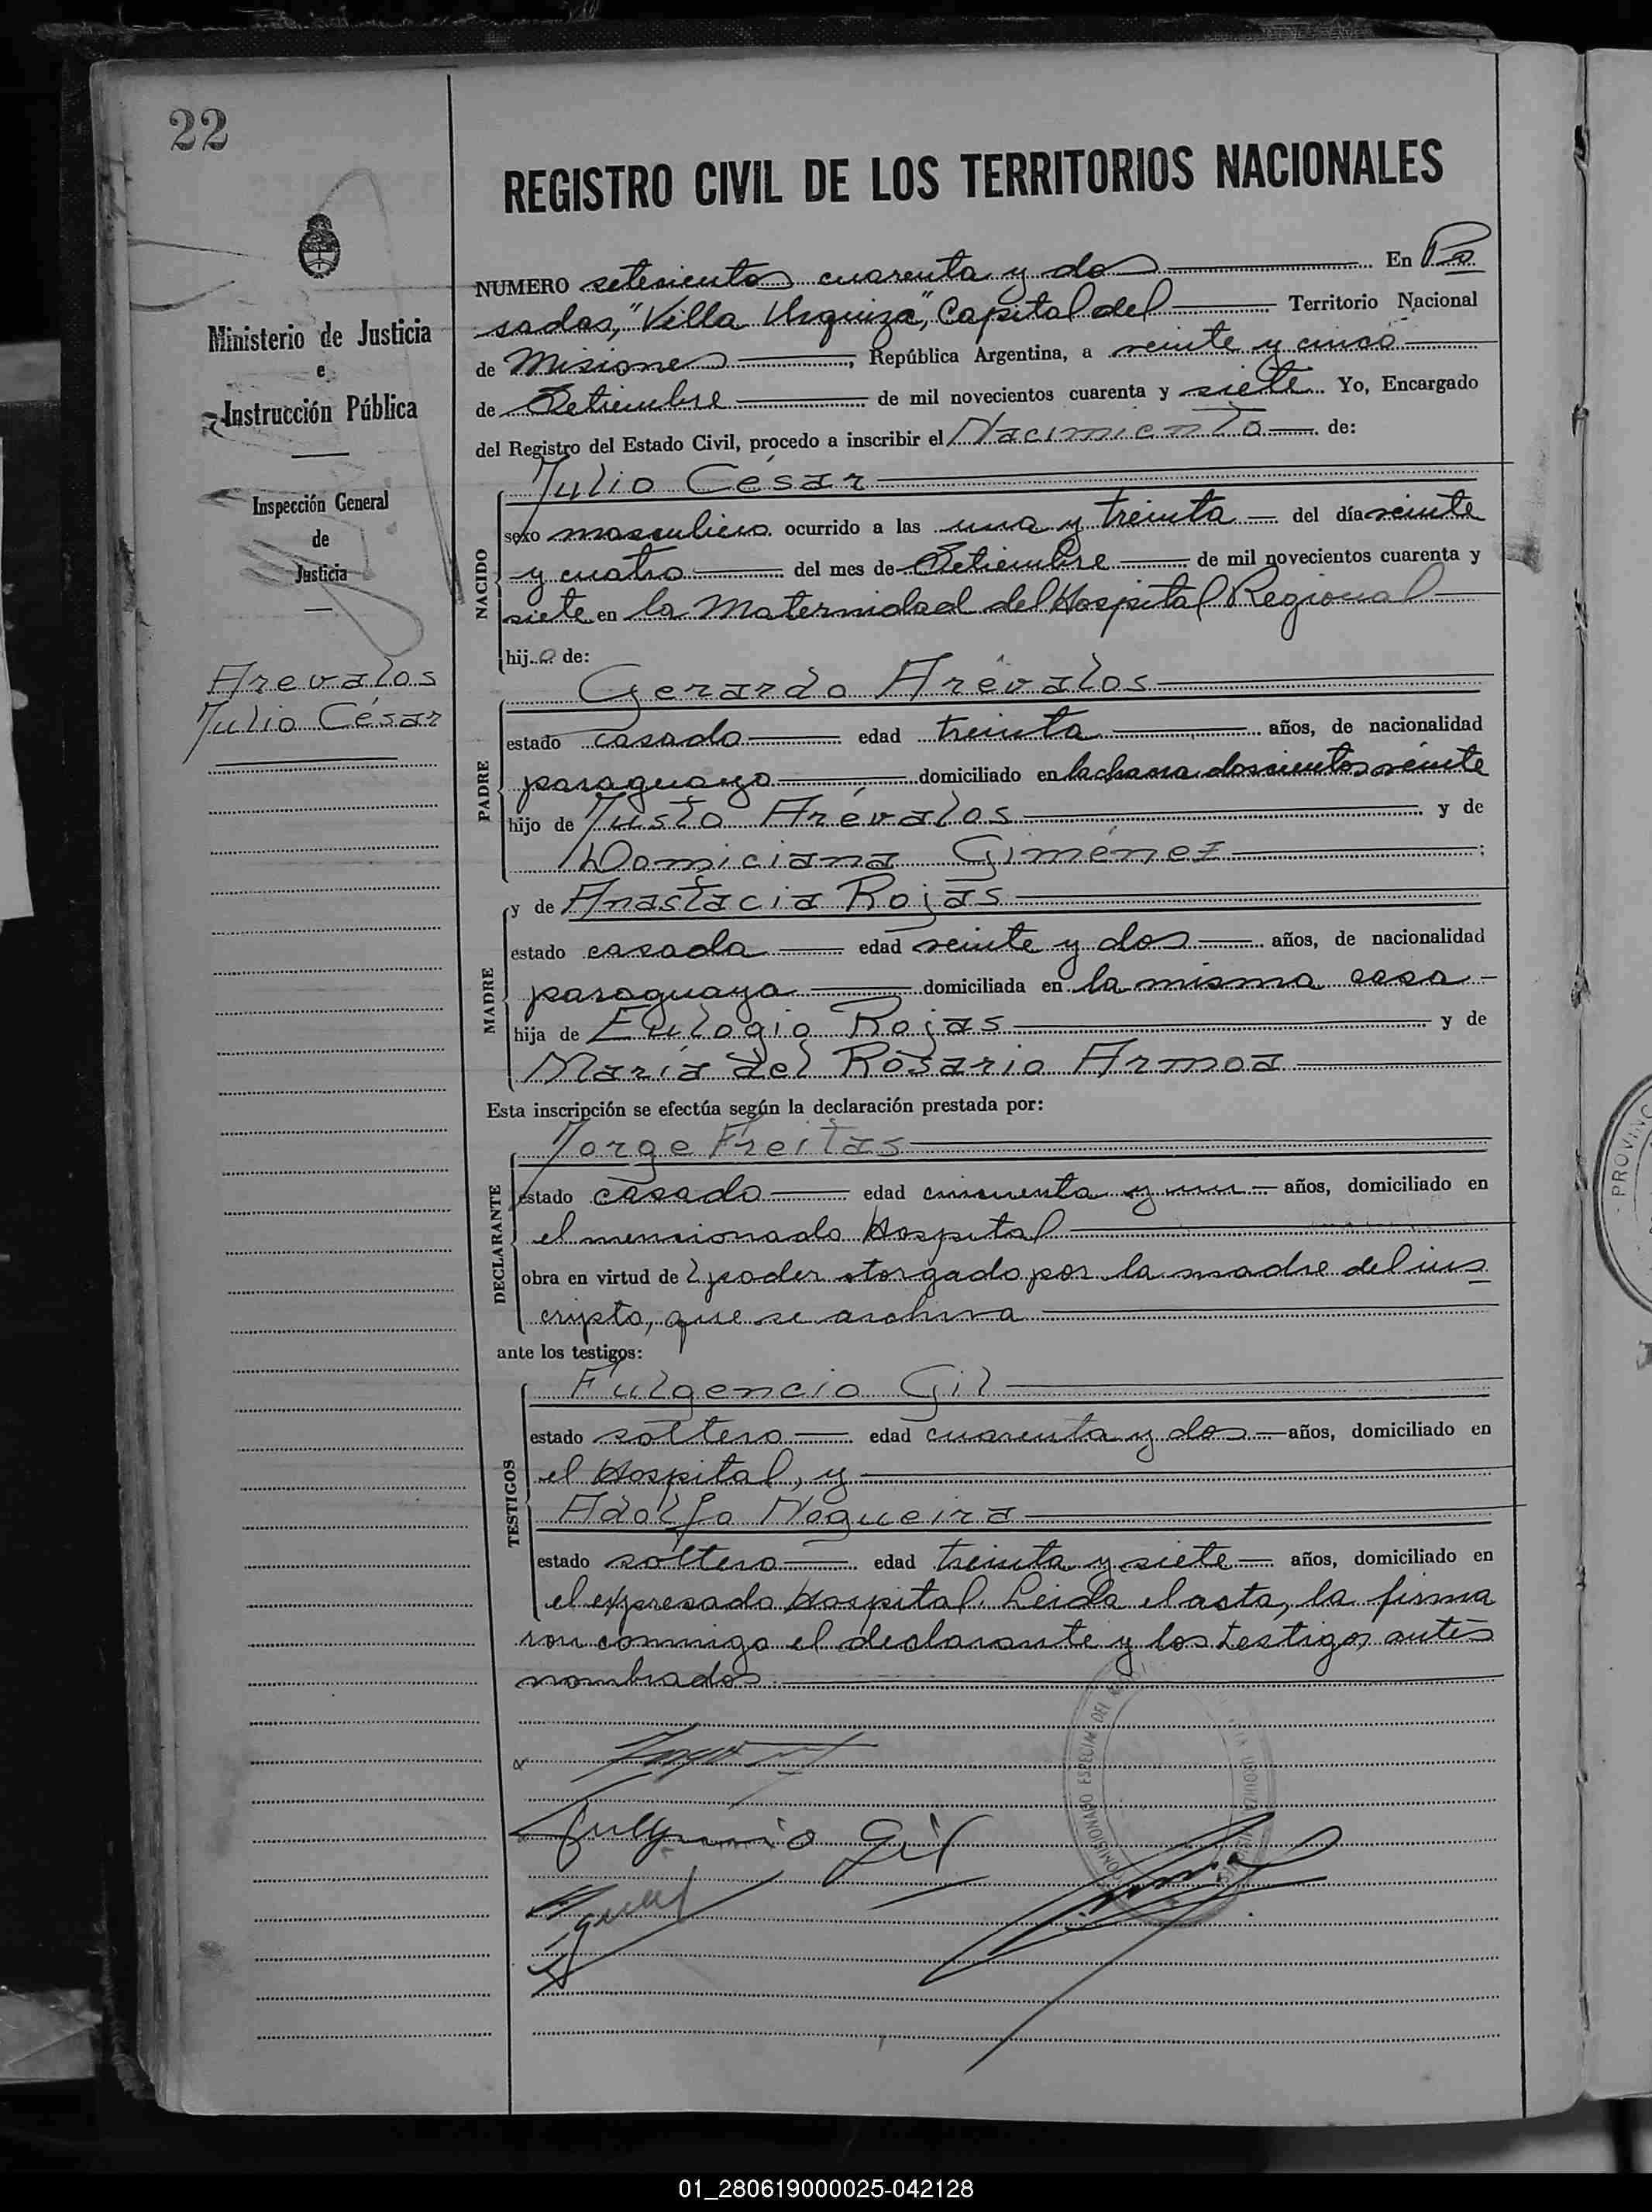 22
REGISTRO CIVIL DE LOS TERRITORIOS NACIONALES
Ministerio de Justicia
e
Instrucción Pública
Inspección General
de
Justicia
Arevalos
Julio César
NUMERO setecientos cuarenta y dos En Po
sadas, "Villa Urquiza", Capital del Territorio Nacional
de Misiones, República Argentina, a veinte y cinco
de Setiembre de mil novecientos cuarenta y siete Yo, Encargado
del Registro del Estado Civil, procedo a inscribir el Nacimiento de:
NACIDO
Julio César
sexo masculino ocurrido a las una y treinta del día veinte
y cuatro del mes de Setiembre de mil novecientos cuarenta y
siete en la Maternidad del Hospital Regional
hijo de:
PADRE
Gerardo Arévalos
estado casado edad treinta años, de nacionalidad
paraguayo domiciliado en la chacra doscientos veinte
hijo de Justo Arévalos y de
Domiciana Giménez;
MADRE
y de Anastacia Rojas
estado casada edad veinte y dos años, de nacionalidad
paraguaya domiciliada en la misma casa
hija de Eulogio Rojas y de
María del Rosario Armoa
Esta inscripción se efectúa según la declaración prestada por:
DECLARANTE
Jorge Freitas
estado casado edad cincuenta y un años, domiciliado en
el mencionado Hospital
obra en virtud de poder otorgado por la madre del ins
cripto, que se archiva
ante los testigos:
TESTIGOS
Fulgencio Gil
estado soltero edad cuarenta y dos años, domiciliado en
el Hospital, y
Adolfo Nogueira
estado soltero edad treinta y siete años, domiciliado en
el expresado Hospital. Leida el acta, la firma
ron conmigo el declarante y los testigos antes
nombrados
Fulgencio Gil
COMISIONADO ESPECIAL DEL
PROVINC
01_280619000025-042128